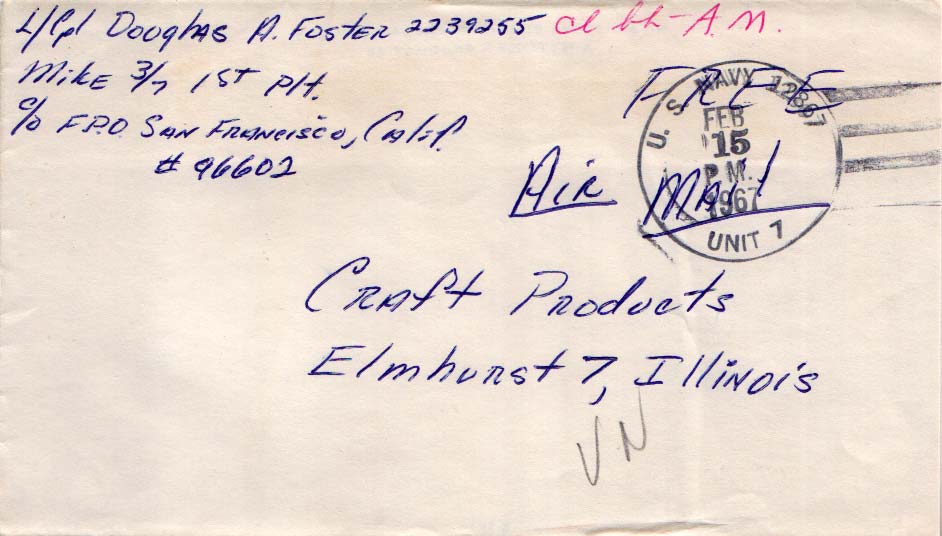 L/Cpl Douglas A. Foster 2239255 cl bh-A.M.
Mike 3/7 1st Plt.
c/o F.P.O. San Francisco, Calif.
# 96602
FREE
Air Mail
U. S. NAVY 12867
FEB
15
P M.
1967
UNIT 7
Craft Products
Elmhurst 7, Illinois
VN